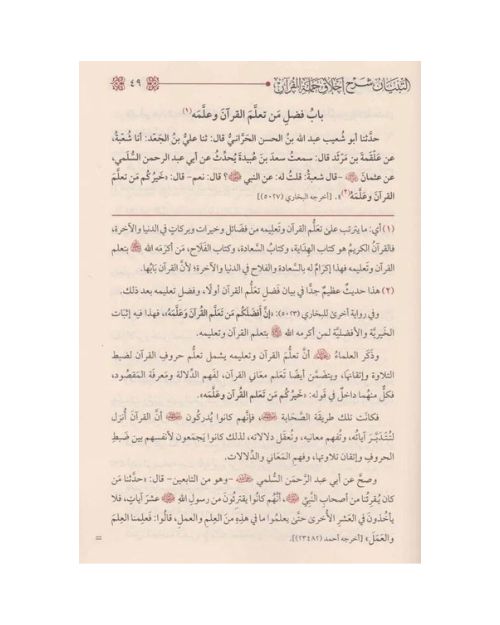 التبيان شرح أخلاق حملة القرآن ٤٩
بابُ فضلِ مَن تعلَّمَ القرآنَ وعلَّمَه (١)
حدَّثنا أبو شُعيب عبد الله بنُ الحسن الحَرَّانيُّ قال: ثنا عليُّ بنُ الجَعْد: أنا شُعبةُ،
عن عَلْقَمةَ بنِ مَرْثَد قال: سمعتُ سعدَ بنَ عُبيدةَ يُحدِّثُ عن أبي عبد الرحمن السُّلَمي،
عن عثمانَ ﵁ -قال شعبةُ: قلتُ له: عن النبي ﷺ؟ قال: نعم- قال: «خَيرُكُم مَن تعلَّمَ
القرآنَ وعَلَّمَهُ(٢)». [أخرجه البخاري (٥٠٢٧)]
(١) أي: ما يترتب على تعلُّم القرآن وتعليمه من فضائل وخيرات وبركاتٍ في الدنيا والآخرة،
فالقرآنُ الكريمُ هو كتاب الهِدَاية، وكتابُ السَّعادة، وكتاب الفَلَاح، مَن أكرَمَه الله ﷻ بتعلم
القرآن وتعليمه فهذا إكرَامٌ له بالسَّعادة والفلاح في الدنيا والآخرة؛ لأنَّ القرآن بَابُها.
(٢) هذا حديثٌ عظيمٌ جدًّا في بيان فَضل تعَلُّم القرآن أولًا، وفضلِ تعليمه بعد ذلك.
وفي رواية أخرىٰ للبخاري (٥٠٢٣): «إنَّ أَفضَلَكُم مَن تَعَلَّمَ القُرآنَ وَعَلَّمَهُ»، فهذا فيه إثبَات
الخَيريَّة والأفضليَّة لمن أكرمه الله ﷻ بتعلم القرآن وتعليمه.
وذَكَر العلماءُ أنَّ تعلُّمَ القرآن وتعليمه يشمل تعلُّم حروفِ القرآن لضبط
التلاوة وإتقانها، ويتضمَّن أيضًا تعلُّم معَاني القرآن، لفَهم الدِّلالة ومَعرفة المَقصُود،
فكلٌّ منهما داخلٌ في قوله: «خَيرُكُم مَن تَعَلم القرآن وعَلَّمه».
فكانَت تلك طَريقَة الصَّحَابة، فإنَّهم كانوا يُدركُون أنَّ القرآن أُنزل
لتُتدَبَّرَ آياتُه، وتُفهم معانيه، وتُعقَل دلالاته، لذلك كانوا يَجمَعون لأنفسهم بين ضَبطِ
الحروف وإتقان تلاوتها، وفهم المَعَاني والدِّلالات.
وصحَّ عن أبي عبد الرَّحمَن السُّلمي -وهو من التابعين- قال: «حدَّثنا مَن
كان يُقرِئُنا من أصحَابِ النَّبيِّ ﷺ، أنَّهم كَانُوا يقتَرِئُونَ من رسولِ الله ﷺ عشرَ آياتٍ، فلا
يأخُذونَ في العَشرِ الأُخرىٰ حتَّىٰ يعلَمُوا ما في هذِهِ منَ العِلمِ والعملِ، قالُوا: فَعَلِمنا العِلمَ
والعَمَلَ» [أخرجه أحمد (٢٣٤٨٢)].